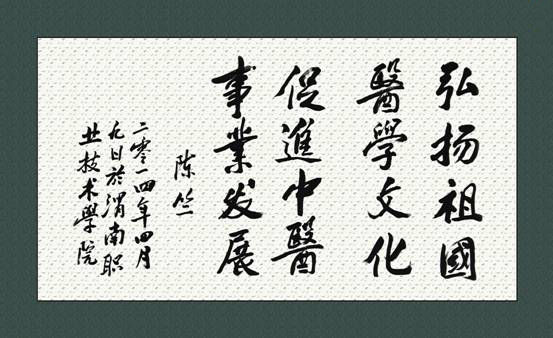 弘扬祖國
醫學文化
促進中醫
事業发展
陈竺
二零一四年四月
九日於渭南职
业技术學院